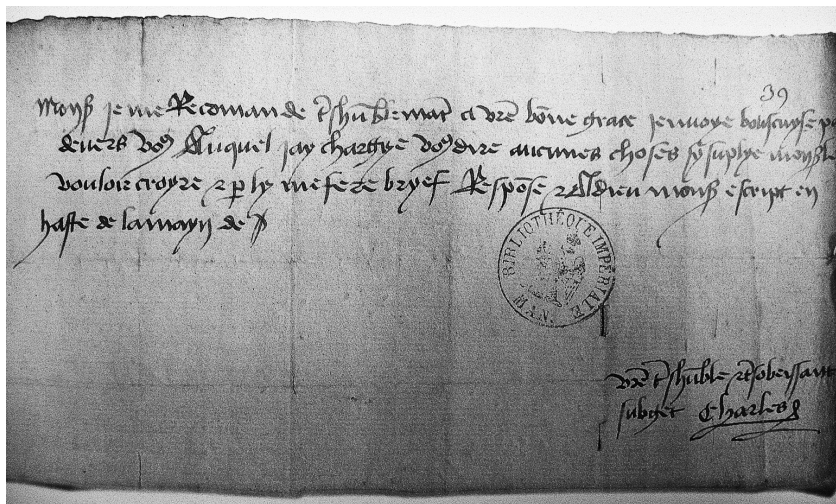 39
Mons̃ je me Recomande t̃shũblemãt a vr̃e bõne grace jenvoye bouscuyse p
devers vo⁹ Auquel jay chargye vo⁹ dire aucunes choses sy suplye mons̃ le
vouloir croyre et p ly me fere bryef Respõse et Adieu mons̃ escript en
haste de la mayn de
BIBLIOTHÈQUE IMPÉRIALE MAN.
vr̃e t̃shũble et t̃sobeissant
subget Charles